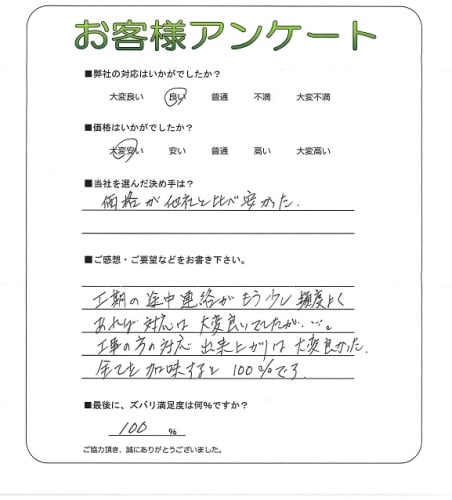 お客様アンケート
■弊社の対応はいかがでしたか？
大変良い 良い 普通 不満 大変不満
■価格はいかがでしたか？
大変安い 安い 普通 高い 大変高い
■当社を選んだ決め手は？
価格が他社と比べ安かった.
■ご感想・ご要望などをお書き下さい。
工期の途中連絡がもう少し頻度よく
あれば対応は大変良いでしたが…。
工事の方の対応 出来上がりは大変良かった.
全てを加味すると100%です
■最後に、ズバリ満足度は何%ですか？
100 %
ご協力頂き、誠にありがとうございました。